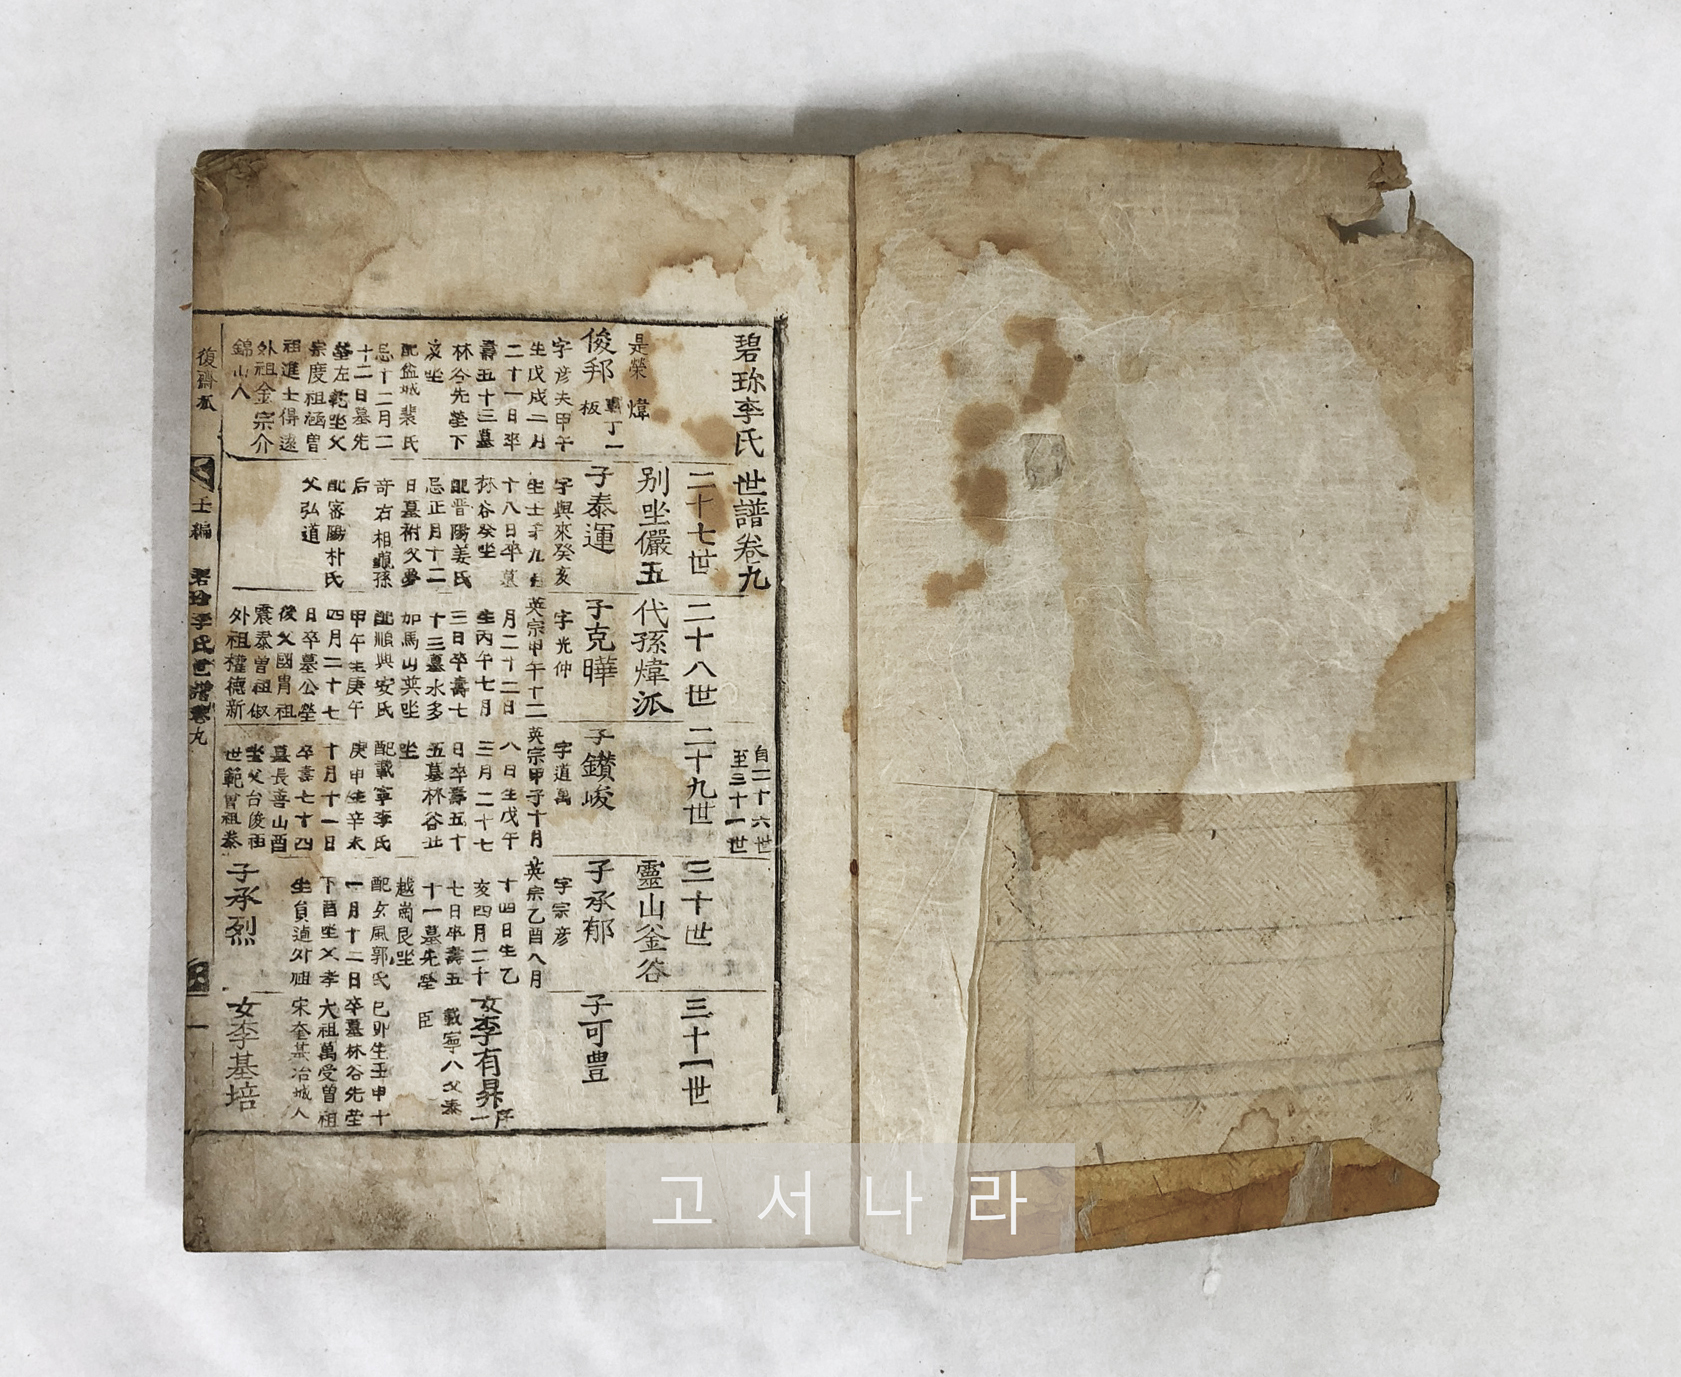 碧珍李氏世譜卷九
自二十六世
至三十一世
二十七世
二十八世
二十九世
三十世
三十一世
別坐儼五代孫煒派
靈山釜谷
是榮
煒
俊邦
板
丁一
字彦夫甲午
生戊戌二月
二十一日卒
壽五十三墓
林谷先塋下
坐
配盆城裴氏
忌十二月二
十二日墓先
塋左乾坐父
宗度祖涵曽
祖進士得遠
外祖金宗介
錦山人
子泰運
字興來癸亥
生士子九月
十八日卒墓
林谷癸坐
配晋陽姜氏
忌正月十二
日墓祔父夢
奇右相龜孫
后
配密陽朴氏
父弘道
子克曄
字光仲
英宗甲午十二
月二十二日
生丙午七月
三日卒壽七
十三墓水多
加馬山英坐
配順興安氏
甲午生庚午
四月二十七
日卒墓公塋
後父國胄祖
震泰曽祖俶
外祖權德新
子鑽峻
字道萬
英宗甲子十月
八日生戊午
三月二十七
日卒壽五十
五墓林谷丑
坐
配載寧李氏
庚申生辛未
十月十一日
卒壽七十四
墓長善山酉
坐父台俊祖
世範曽祖泰
子承郁
字宗彦
英宗乙酉八月
十四日生乙
亥四月二十
七日卒壽五
十一墓先塋
越崗艮坐
配玄風郭氏
一月十二日
下酉坐父孝
生負逌外祖
子承烈
子可豊
女李有昇
載寧人父泰
臣
己卯生壬申十
卒墓林谷先塋
大祖萬受曽祖
宋奎基冶城人
女李基培
復齋派
壬編
碧珍李氏世譜卷九
一
고서나라